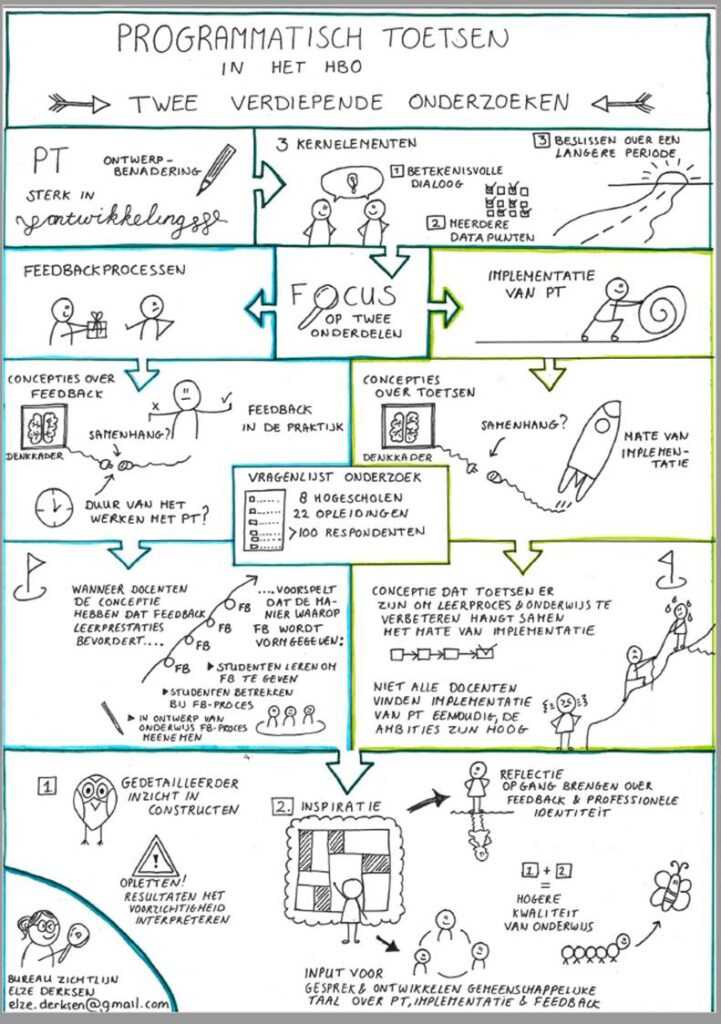 PROGRAMMATISCH TOETSEN
IN HET HBO
TWEE VERDIEPENDE ONDERZOEKEN
PT
ONTWERP-
BENADERING
STERK IN
ontwikkelings
3 KERNELEMENTEN
1 BETEKENISVOLLE
DIALOOG
2 MEERDERE
DATAPUNTEN
3 BESLISSEN OVER EEN
LANGERE PERIODE
FEEDBACKPROCESSEN
FOCUS
OP TWEE
ONDERDELEN
IMPLEMENTATIE
VAN PT
CONCEPTIES OVER
FEEDBACK
DENKKADER
SAMENHANG?
X
✓
FEEDBACK
IN DE PRAKTIJK
DUUR VAN HET
WERKEN MET PT?
CONCEPTIES
OVER TOETSEN
DENKKADER
SAMENHANG?
MATE VAN
IMPLEMEN-
TATIE
VRAGENLIJST ONDERZOEK
8 HOGESCHOLEN
22 OPLEIDINGEN
>100 RESPONDENTEN
WANNEER DOCENTEN
DE CONCEPTIE
HEBBEN DAT FEEDBACK
LEERPRESTATIES
BEVORDERT....
FB
FB
FB
FB
....VOORSPELT
DAT DE MA-
NIER WAAROP
FB WORDT
VORMGEGEVEN:
▸ STUDENTEN LEREN OM
FB TE GEVEN
▸ STUDENTEN BETREKKEN
BIJ FB-PROCES
▸ IN ONTWERP VAN
ONDERWIJS FB-PROCES
MEENEMEN
CONCEPTIE DAT TOETSEN ER
ZIJN OM LEERPROCES & ONDERWIJS TE
VERBETEREN HANGT SAMEN
MET MATE VAN IMPLEMENTATIE
NIET ALLE DOCENTEN
VINDEN IMPLEMENTATIE
VAN PT EENVOUDIG, DE
AMBITIES ZIJN HOOG
1 GEDETAILLEERDER
INZICHT IN
CONSTRUCTEN
!
OPLETTEN!
RESULTATEN MET
VOORZICHTIGHEID
INTERPRETEREN
2. INSPIRATIE
REFLECTIE
OP GANG BRENGEN OVER
FEEDBACK & PROFESSIONELE
IDENTITEIT
1 + 2
=
HOGERE
KWALITEIT
VAN ONDERWIJS
INPUT VOOR
GESPREK & ONTWIKKELEN GEMEENSCHAPPELIJKE
TAAL OVER PT, IMPLEMENTATIE & FEEDBACK
BUREAU ZICHTLIJN
ELZE DERKSEN
elze.derksen@gmail.com